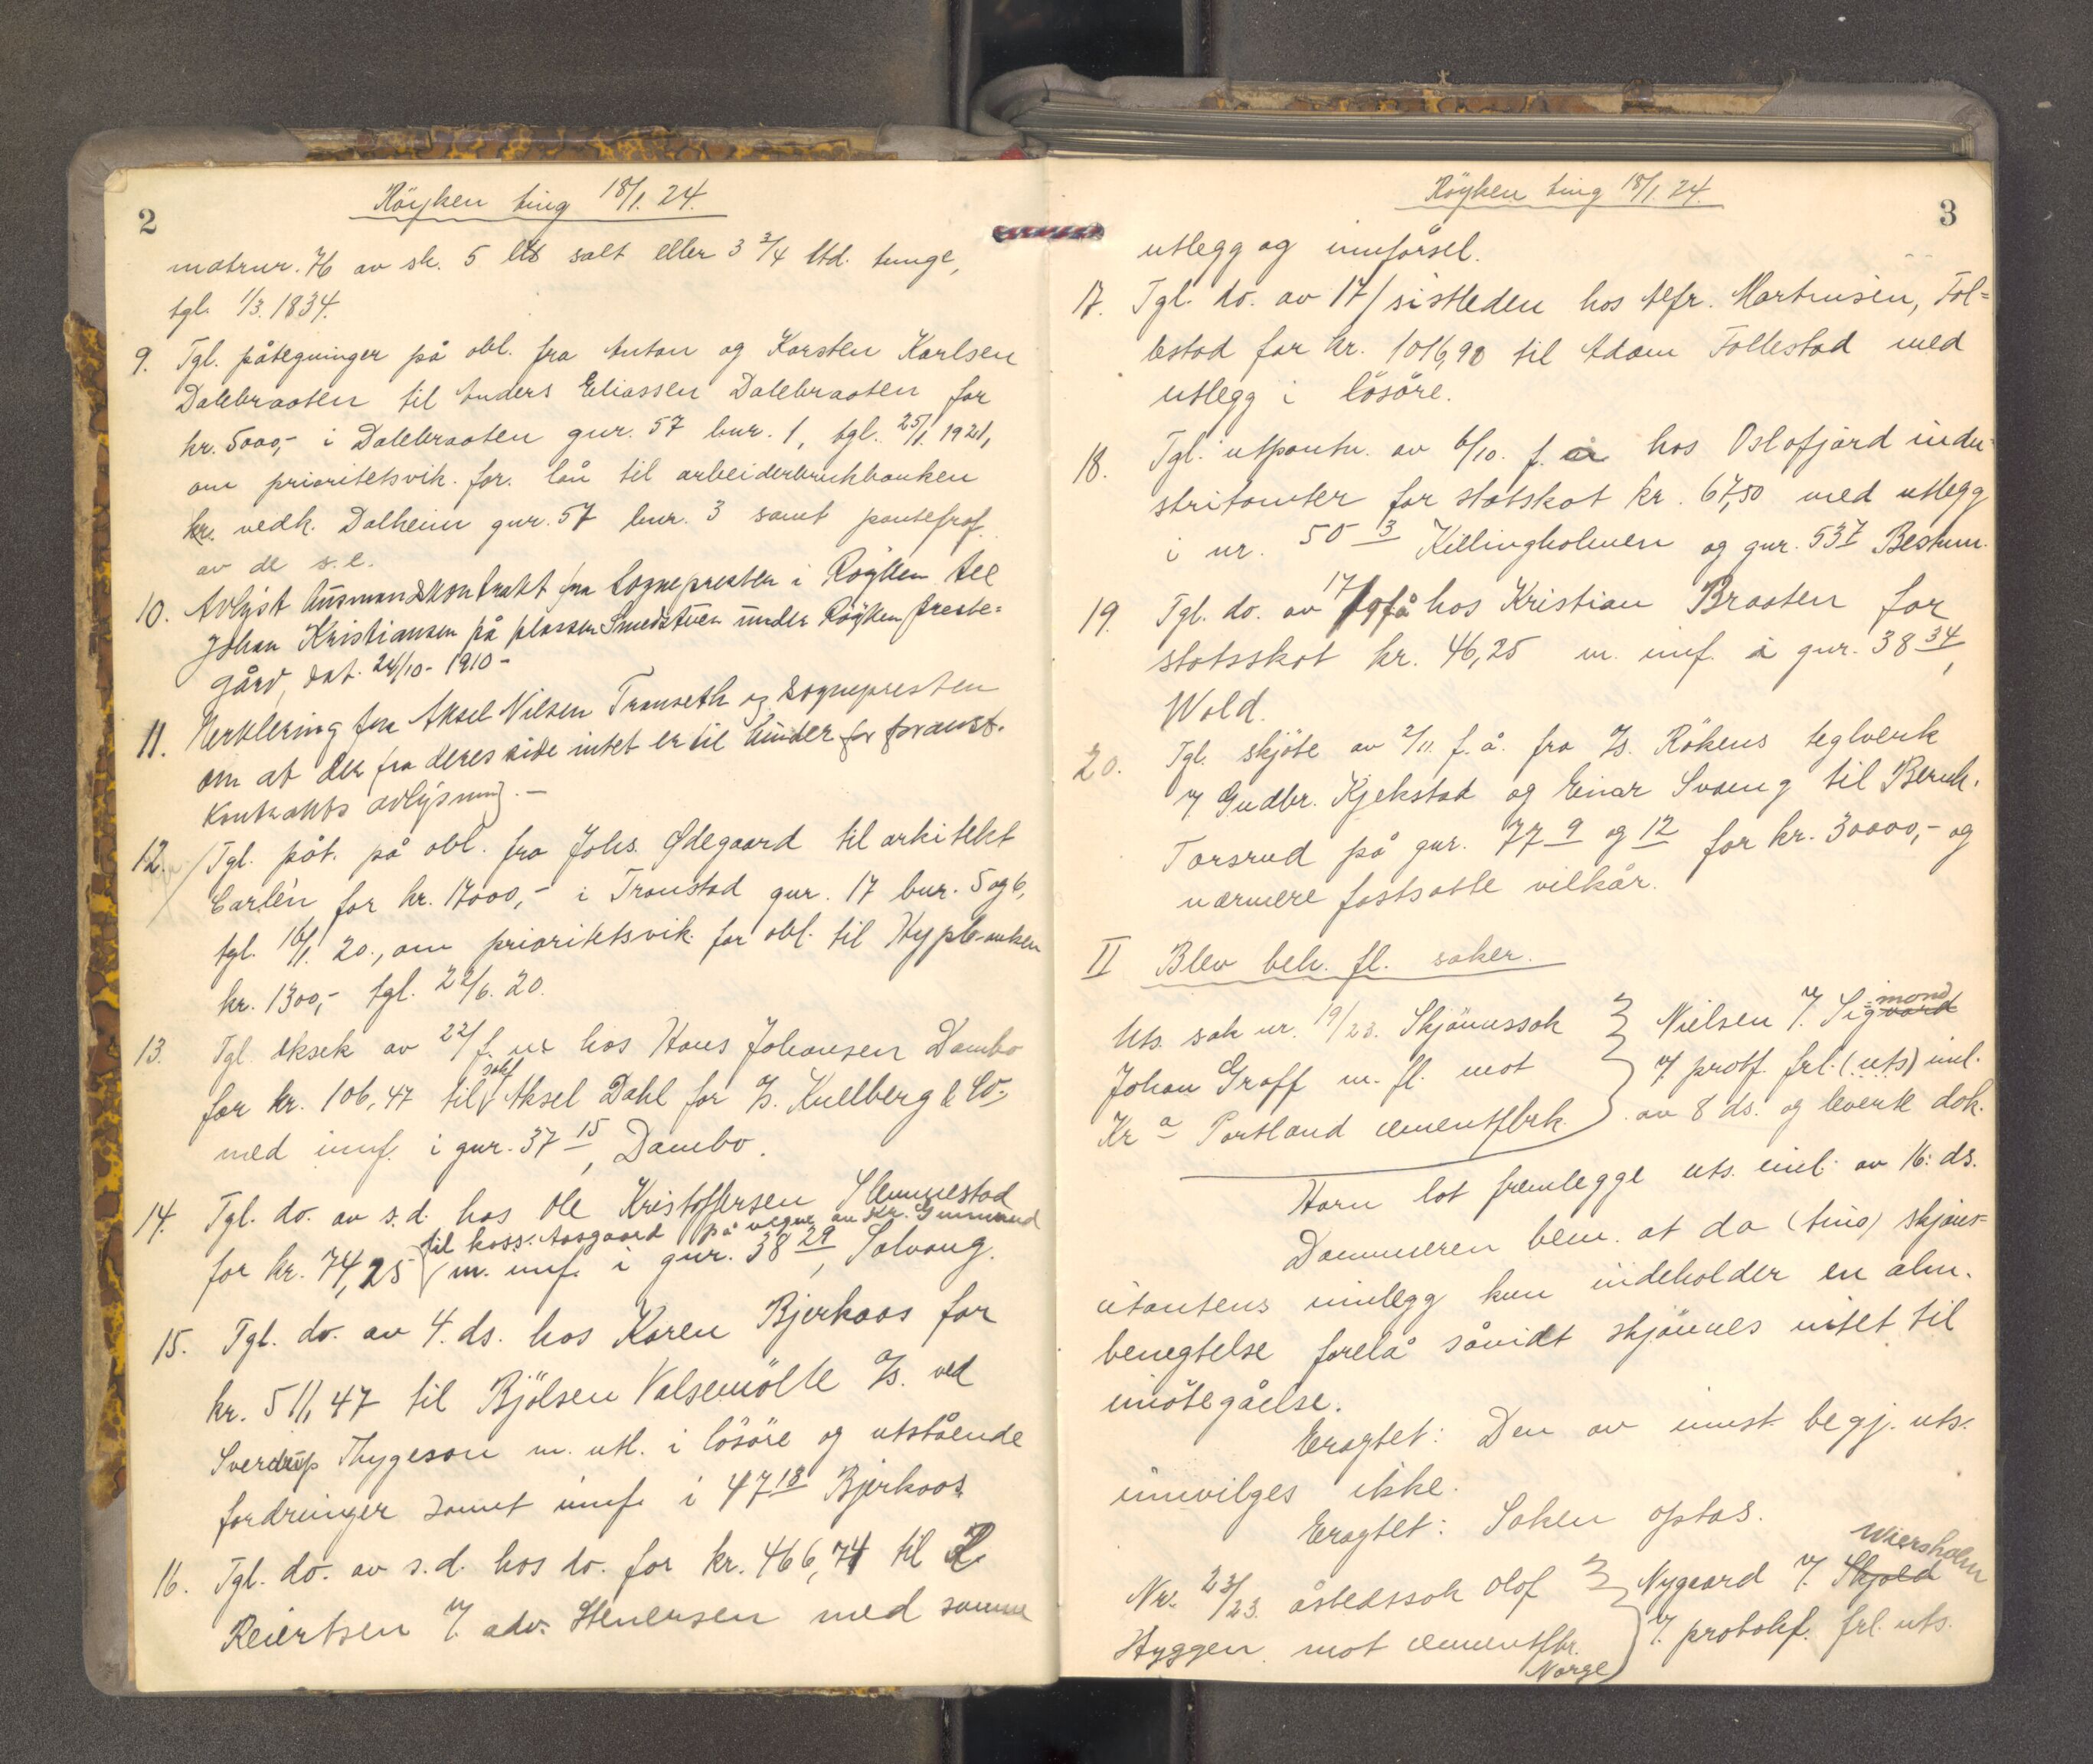 2
Röyken ting 18/1. 24.
matrnr. 76 av sk. 5 lb salt eller 3 3/4 ltd. tunge,
tgl. 1/3. 1834.
9. Tgl. påtegninger på obl. fra Anton og Karsten Karlsen
Dalebraaten til Anders Eliassen Dalebraaten for
kr. 5000,- i Dalebraaten gnr. 57 bnr. 1, tgl. 25/1. 1921,
om prioritetsvik. for. lån til arbeiderbrukbanken
kr. vedk. Dalheim gnr. 57 bnr. 3 samt pantefraf.
av de s. e.
10. Avlyst Husmandskontrakt fra Sognepresten i Röyken til
Johan Kristiansen på plassen Smedstuen under Röyken preste=
gård, dat. 24/10- 1910-
11. Nerklering fra Aksel Nilsen Transeth og Sognepresten
om at der fra deres side intet er til hinder for foranst.
Kontrakts avlysning.-
12. Tgl. påt. på obl. fra Johs. Ødegaard til arkitekt
Carlén for kr. 17000,- i Tronstad gnr. 17 bnr. 5 og 6,
tgl. 16/1. 20., om prioritetsvik. for obl. til Hypb-anken
kr. 1300,- tgl. 22/6. 20.
13. Tgl. eksek av 22/f. m hos Hans Johansen Dambo
for kr. 106,47 til sakf Aksel Dahl for A/s. Kullberg & Co-,
med innf. i gnr. 37 15, Dambo.
14. Tgl. do. av s.d. hos Ole Kristoffersen Slemmestad
til kass. Aasgaard på vegne av Hr. Gunnerud
for kr. 74,25 m. innf. i gnr. 38 29, Solvang.
15. Tgl. do. av 4. ds. hos Karen Bjerkaas for
kr. 511,47 til Bjölsen Valsemölle A/s. ved
Sverdrup Thygeson m. utl. i lösöre og utstående
fordringer samt innf. i 47 18 Bjerkaas.
16. Tgl. do. av s.d. hos do. for kr. 466,74 til
Reiertsen v/. adv. Stenersen med samme
3
Röyken ting 18/1. 24.
utlegg og innförsel.
17. Tgl. do. av 17/ sistleden hos Alfr. Martinsen, Fol=
lestad for kr. 1016,90 til Adam Follestad med
utlegg i lösöre.
18. Tgl. utpantn. av 6/10. f. å hos Oslofjord indu-
stritomter for statskat kr. 67,50 med utlegg
i nr. 50 3 Killingholmen og gnr. 53 7 Bestum.
19. Tgl. do. av 17/ f å hos Kristian Braaten for
statsskat kr. 46,25 m. innf. i gnr. 38 34,
Wold.
20. Tgl. skjöte av 2/11. f. å. fra A/s. Rökens teglverk
v/ Gudbr. Kjekstad og Einar Svang til Bernh.
Torsrud på gnr. 77 9 og 12 for kr. 30000,- og
nærmere fastsatte vilkår.
II Blev beh. fl. saker.
Uts. sak nr. 19/23. Skjönnssak } Nielsen v/. Sigvard =mond
Johan Graff m. fl. mot } v/ protf. frl. (uts) inl.
Kr a Portland cementfbrk. } av 8 ds. og leverte dok.
Horn lot fremlegge uts. inl. av 16. ds.
Dommeren bem. at da (ting) skjöns=
utantens innlegg kun indeholder en alm.
benegtelse forelå såvidt skjönnes intet til
imötegåelse.
Eragtet: Den av innst. begj. uts.
innvilges ikke.
Eragtet: Saken optas.
Nr. 23/23. åstedssak Olof } Nygaard v/. Skjold Wiersholm
Hyggen mot cementfbr. } v/. protokf. frl. uts.
Norge